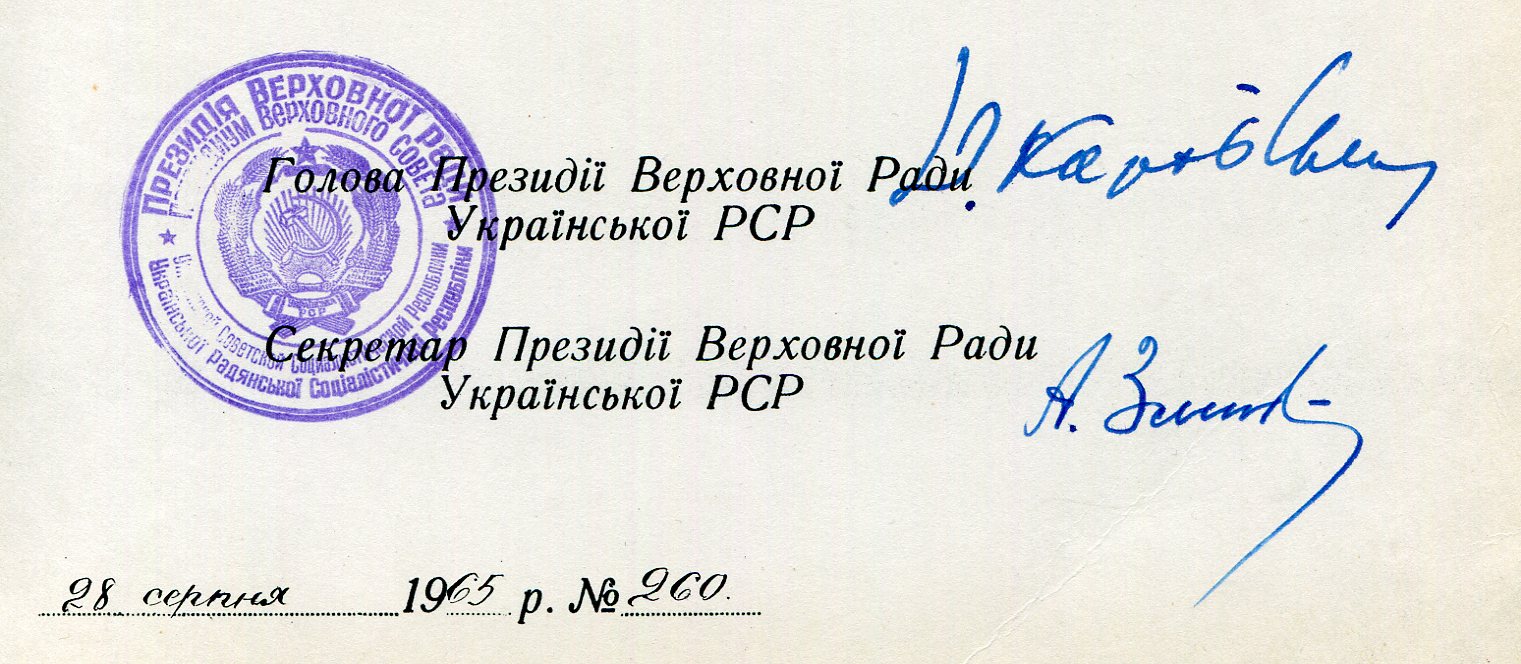 ПРЕЗИДІЯ ВЕРХОВНОЇ РАДИ
ВЕРХОВНОГО СОВЕТА
Української Радянської Соціалістичної Республіки
Советской Социалистической Республики
РСР
Голова Президії Верховної Ради
Української РСР
Секретар Президії Верховної Ради
Української РСР
А.
28 серпня 1965 р. № 260.